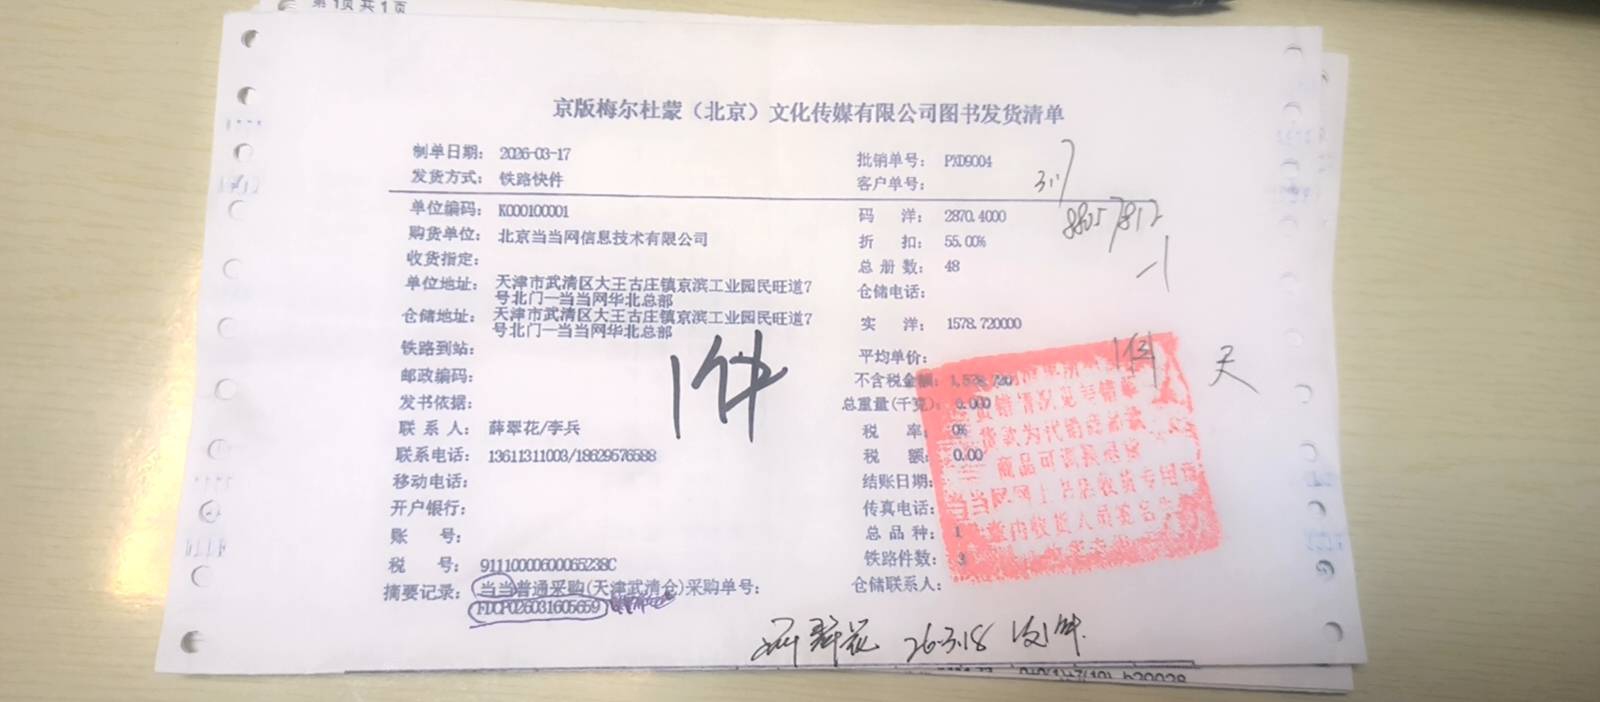 第1页共1页
京版梅尔杜蒙（北京）文化传媒有限公司图书发货清单
制单日期： 2026-03-17
批销单号： PXD9004
发货方式： 铁路快件
客户单号：
3.17
单位编码： K000100001
码 洋： 2870.4000
88057812
购货单位： 北京当当网信息技术有限公司
折 扣： 55.00%
收货指定：
总 册 数： 48
单位地址： 天津市武清区大王古庄镇京滨工业园民旺道7
号北门—当当网华北总部
仓储电话：
仓储地址： 天津市武清区大王古庄镇京滨工业园民旺道7
号北门—当当网华北总部
实 洋： 1578.720000
铁路到站：
平均单价：
1件
1件 天
邮政编码：
不含税金额： 1,578.720
发书依据：
总重量(千克)： 0.000
联 系 人： 薛翠花/李兵
税 率： 0%
联系电话： 13611311003/18629576588
税 额： 0.00
移动电话：
结账日期：
开户银行：
传真电话：
账 号：
总 品 种： 1
税 号： 91110000600065238C
铁路件数： 3
摘要记录： 当当普通采购(天津武清仓)采购单号：
FDCP026031605659
仓储联系人：
货款为代销
商品可调换退
当当网网上书店收货专用章
26.3.18 收1件